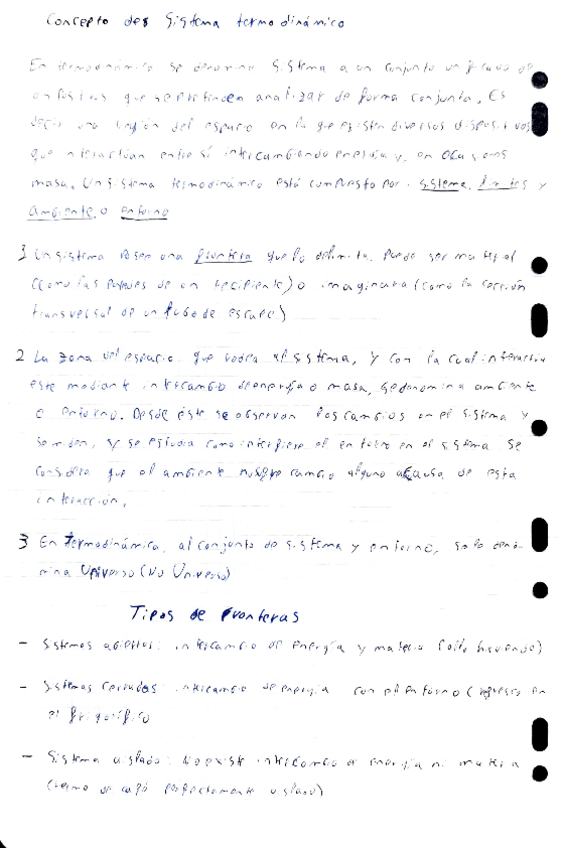 Concepto del Sistema termodinámico
En termodinámica se denomina sistema a un conjunto de
que se pretenden analizar de forma conjunta. Es
decir una región del espacio en la que existen diversos dispositivos
que interactúan entre sí intercambiando energía y, en ocasiones
masa. Un sistema termodinámico está compuesto por: sistema, y
ambiente o entorno
1 Un sistema posee una frontera que lo delimita. Puede ser material
(como las paredes de un recipiente) o imaginaria (como la sección
transversal de un tubo de escape)
2 La zona del espacio que rodea al sistema, y con la cual interactua
este mediante intercambio de energía o masa, se denomina ambiente
o entorno. Desde éste se observan los cambios en el sistema y
se miden, y se estudia como interfiere el entorno en el sistema se
considera que el ambiente no sufre cambio alguno a causa de esta
interacción.
3 En termodinámica, al conjunto de sistema y entorno, se le deno-
mina Universo (No Universo)
Tipos de Fronteras
- Sistemas abiertos: intercambio de energía y materia (olla hirviendo)
- Sistemas cerrados: intercambio de energía con el entorno (refresco en
el frigorífico
- Sistema aislado: No existe intercambio de energía ni materia
(termo de café perfectamente aislado)